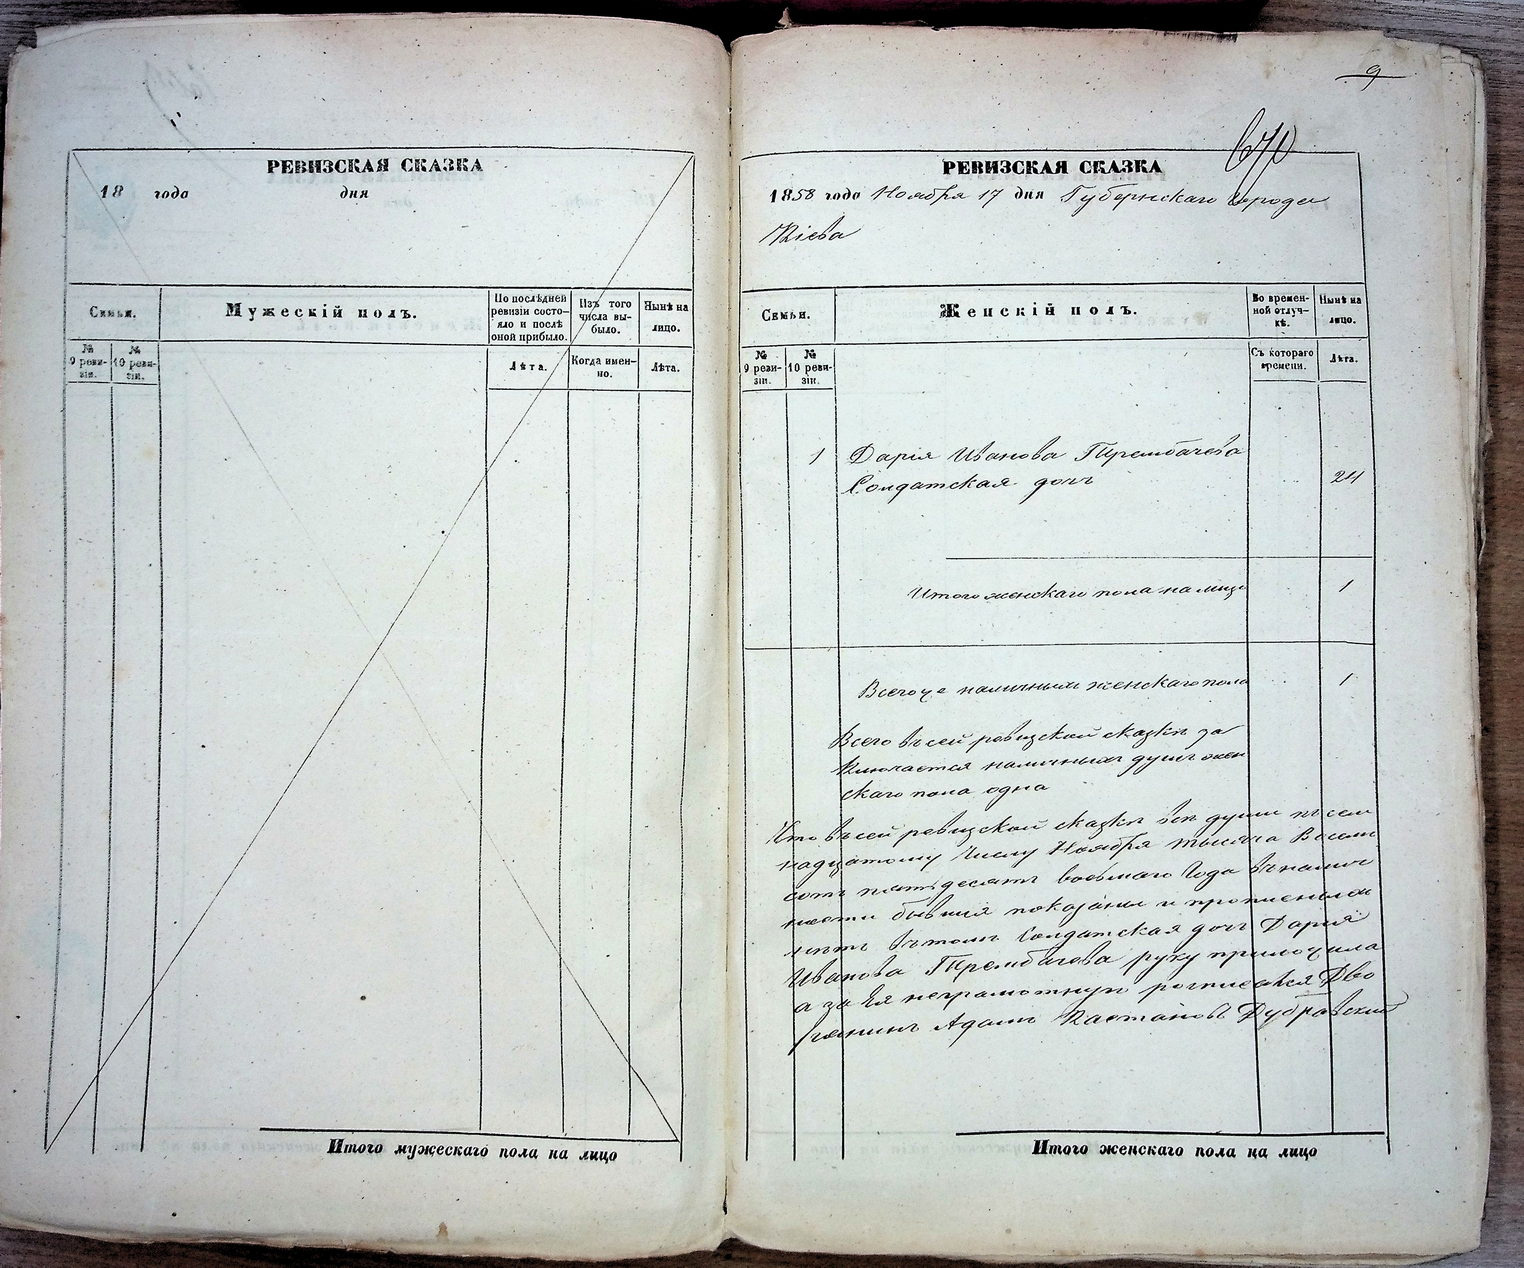 РЕВИЗСКАЯ СКАЗКА
18 года дня
Семьи.
Мужескій полъ.
По послѣдней ревизіи состояло и послѣ оной прибыло.
Изъ того числа выбыло.
Нынѣ на лицо.
№ 9 ревизіи.
№ 10 ревизіи.
Лѣта.
Когда именно.
Лѣта.
Итого мужескаго пола на лицо
9
670
РЕВИЗСКАЯ СКАЗКА
1858 года Ноября 17 дня Губернскаго города
Кіева
Семьи.
Женскій полъ.
Во временной отлучкѣ.
Нынѣ на лицо.
№ 9 ревизіи.
№ 10 ревизіи.
Съ котораго времени.
Лѣта.
1 Дарія Иванова
Солдатская дочь 24
Итого женскаго пола на лицо 1
Всего же наличныхъ женскаго пола 1
Всего въ сей ревизской сказкѣ за
ключается наличныхъ душъ жен
скаго пола одна
Что въ сей ревизской сказкѣ всѣ души къ сем
надцатому числу Ноября тысяча Восемь
сотъ пятьдесятъ восьмаго Года въ налич
ности бывшія показаны и прописныхъ
нѣтъ въ томъ Солдатская дочь Дарія
Иванова руку приложила
а за Ея неграмотную росписался Дво
рянинъ Адамъ Дубравскій
Итого женскаго пола на лицо